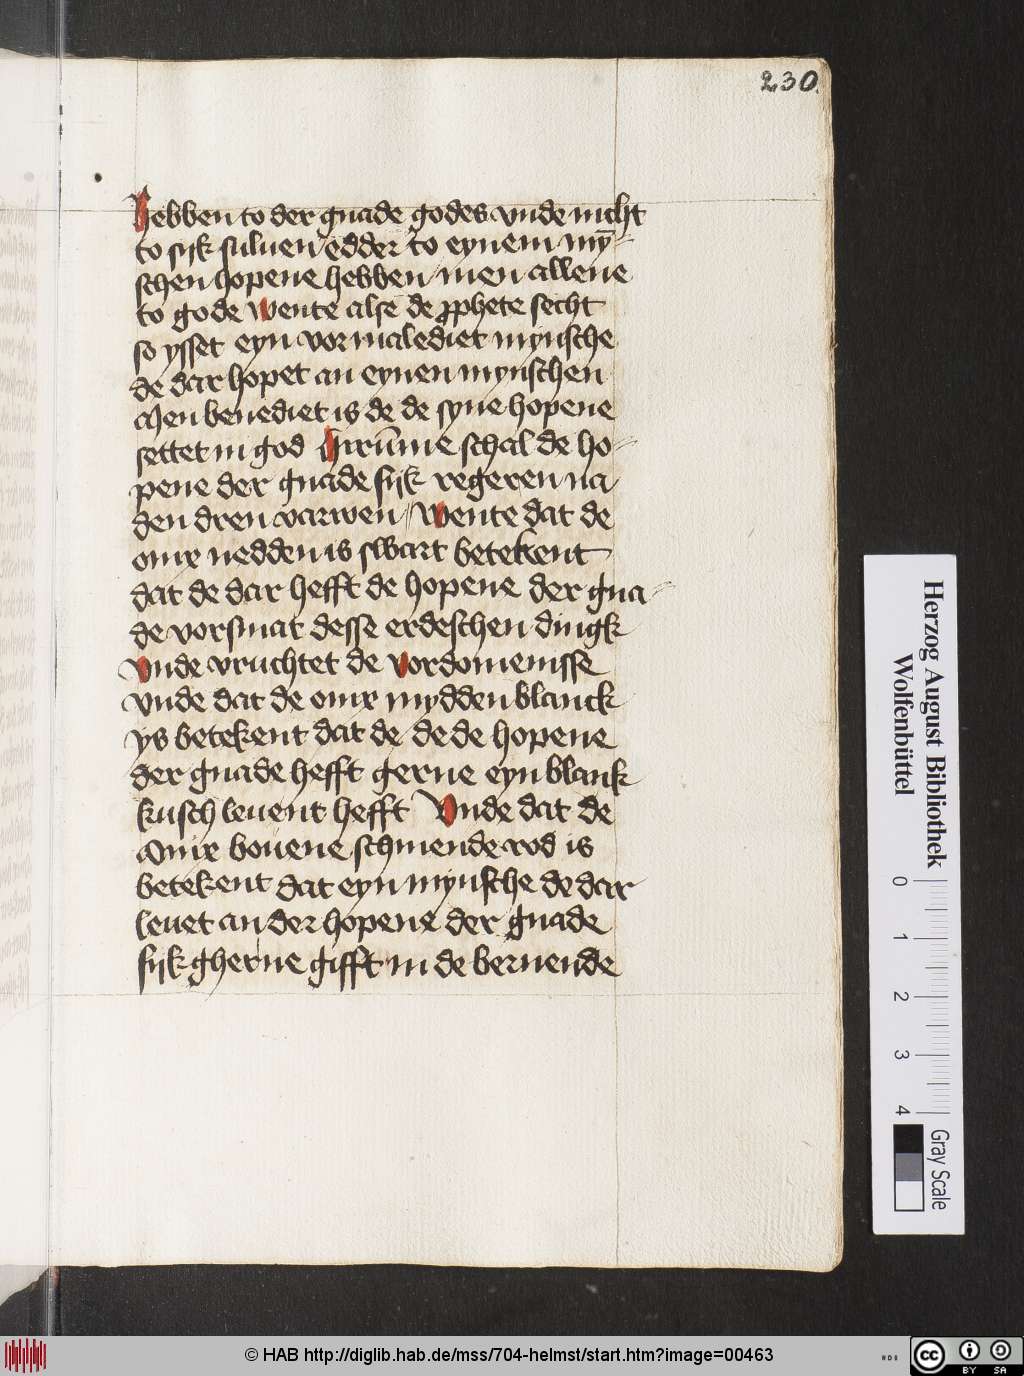 230
hebben to der gnade godes vnde nicht
to sijk suluen edder to eynem mȳ-
schen hopene hebben men allene
to gode wente alse de prophete secht
so ysset eyn vormalediet mynsche
de dar hopet an eynen mynschen
Men benediet is de de syne hopene
settet in god Hirūme schal de ho-
pene der gnade sijk regeren na
den dren varwen wente dat de
onix nedden is swart betekent
dat de dar hefft de hopene der gna-
de vorsmat desse erdeschen dingk
vnde vruchtet de vordomenisse
vnde dat de onix mydden blanck
ys betekent dat de de de hopene
der gnade hefft gerne eyn blank
kusch leuent hefft Vnde dat de
Onix bouene schinende rod is
betekent dat eyn mynsche de dar
leuet an der hopene der gnade
sijk gherne gifft in de bernende
Herzog August Bibliothek
Wolfenbüttel
0 1 2 3 4
Gray Scale
© HAB http://diglib.hab.de/mss/704-helmst/start.htm?image=00463
cc BY SA